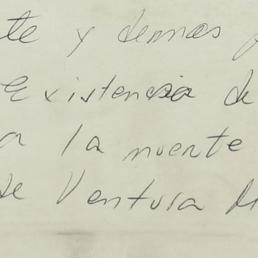 te y demas
Existencia de
a la muente
se Ventura